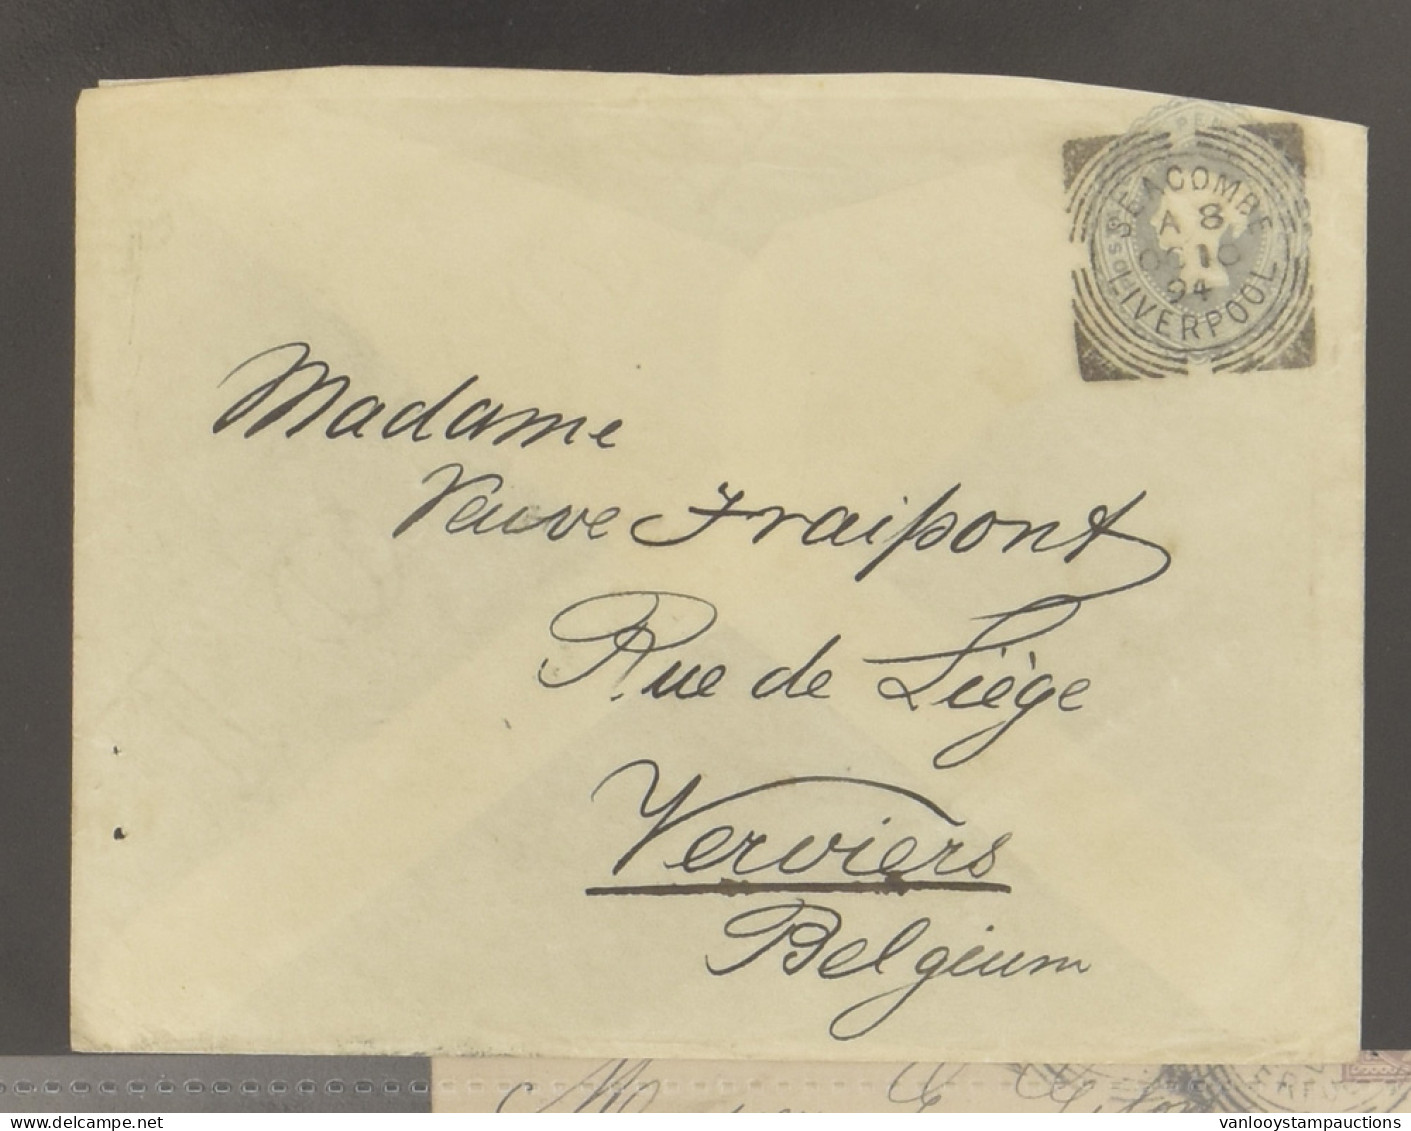 SEACOMBE
A 8
OC 10
94
LIVERPOOL
Madame
Veuve Fraipont
Rue de Liège
Verviers
Belgium
vanlooystampauctions